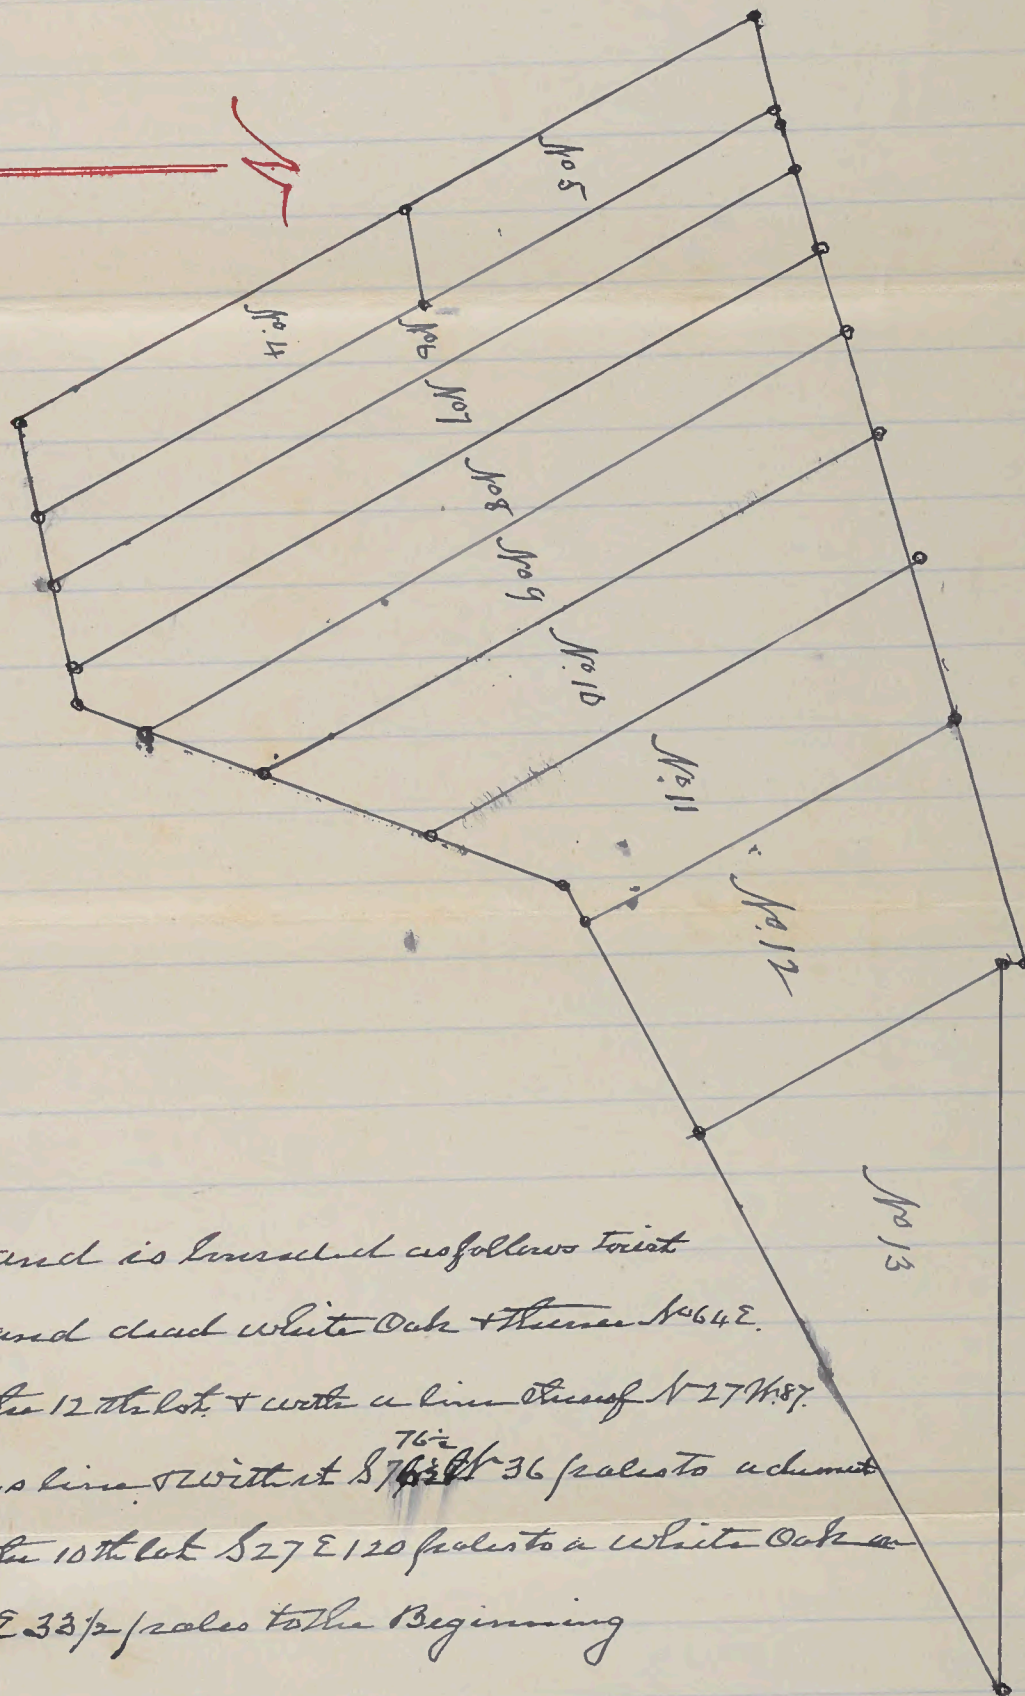 N
No 5
No. 4
No 6
No 7
No 8
No 9
No. 10
No. 11
No. 12
No 13
and is bounded as follows towit
and dead white Oak & thence No 64 E.
the 12th lot & with a line thereof N 27 W. 87.
s line & with it S 76½ W 36 poles to a
the 10th lot S 27 E 120 poles to a white Oak on
E 33½ poles to the Beginning